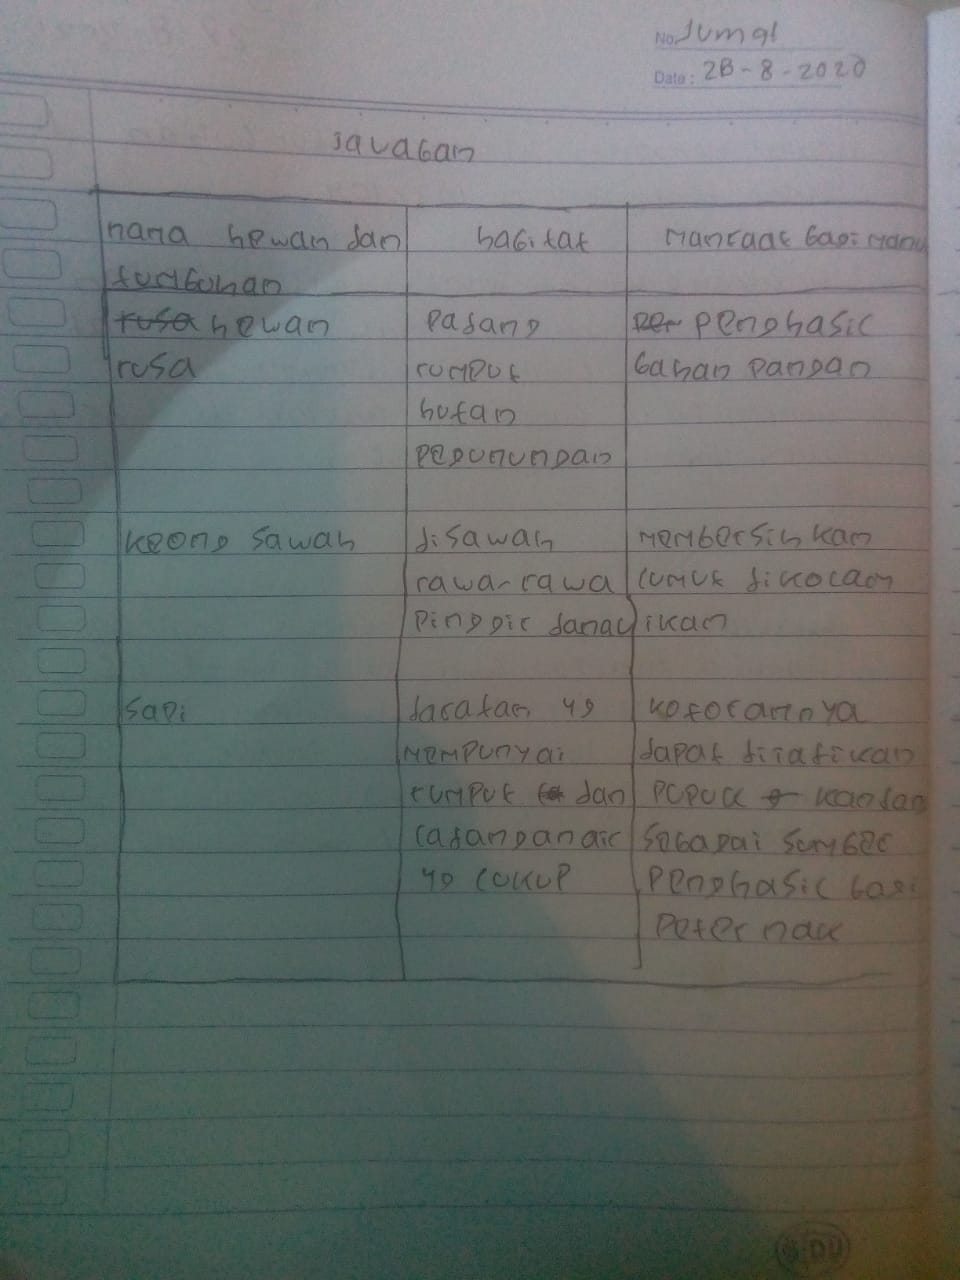 No. Jumat
Date: 28-8-2020
Jawaban
nama hewan dan habitat manfaat bagi manu
tumbuhan
rusa hewan padang per penghasil
rusa rumput bahan pangan
hutan
pegunungan
keong sawah disawah membersihkan
rawa-rawa lumut dikolam
pinggir danau ikan
sapi daratan yg kotorannya
mempunyai dapat dijadikan
rumput dan pupuk kandan
ladangan air sebagai sumber
yg cukup penghasil bagi
peternak